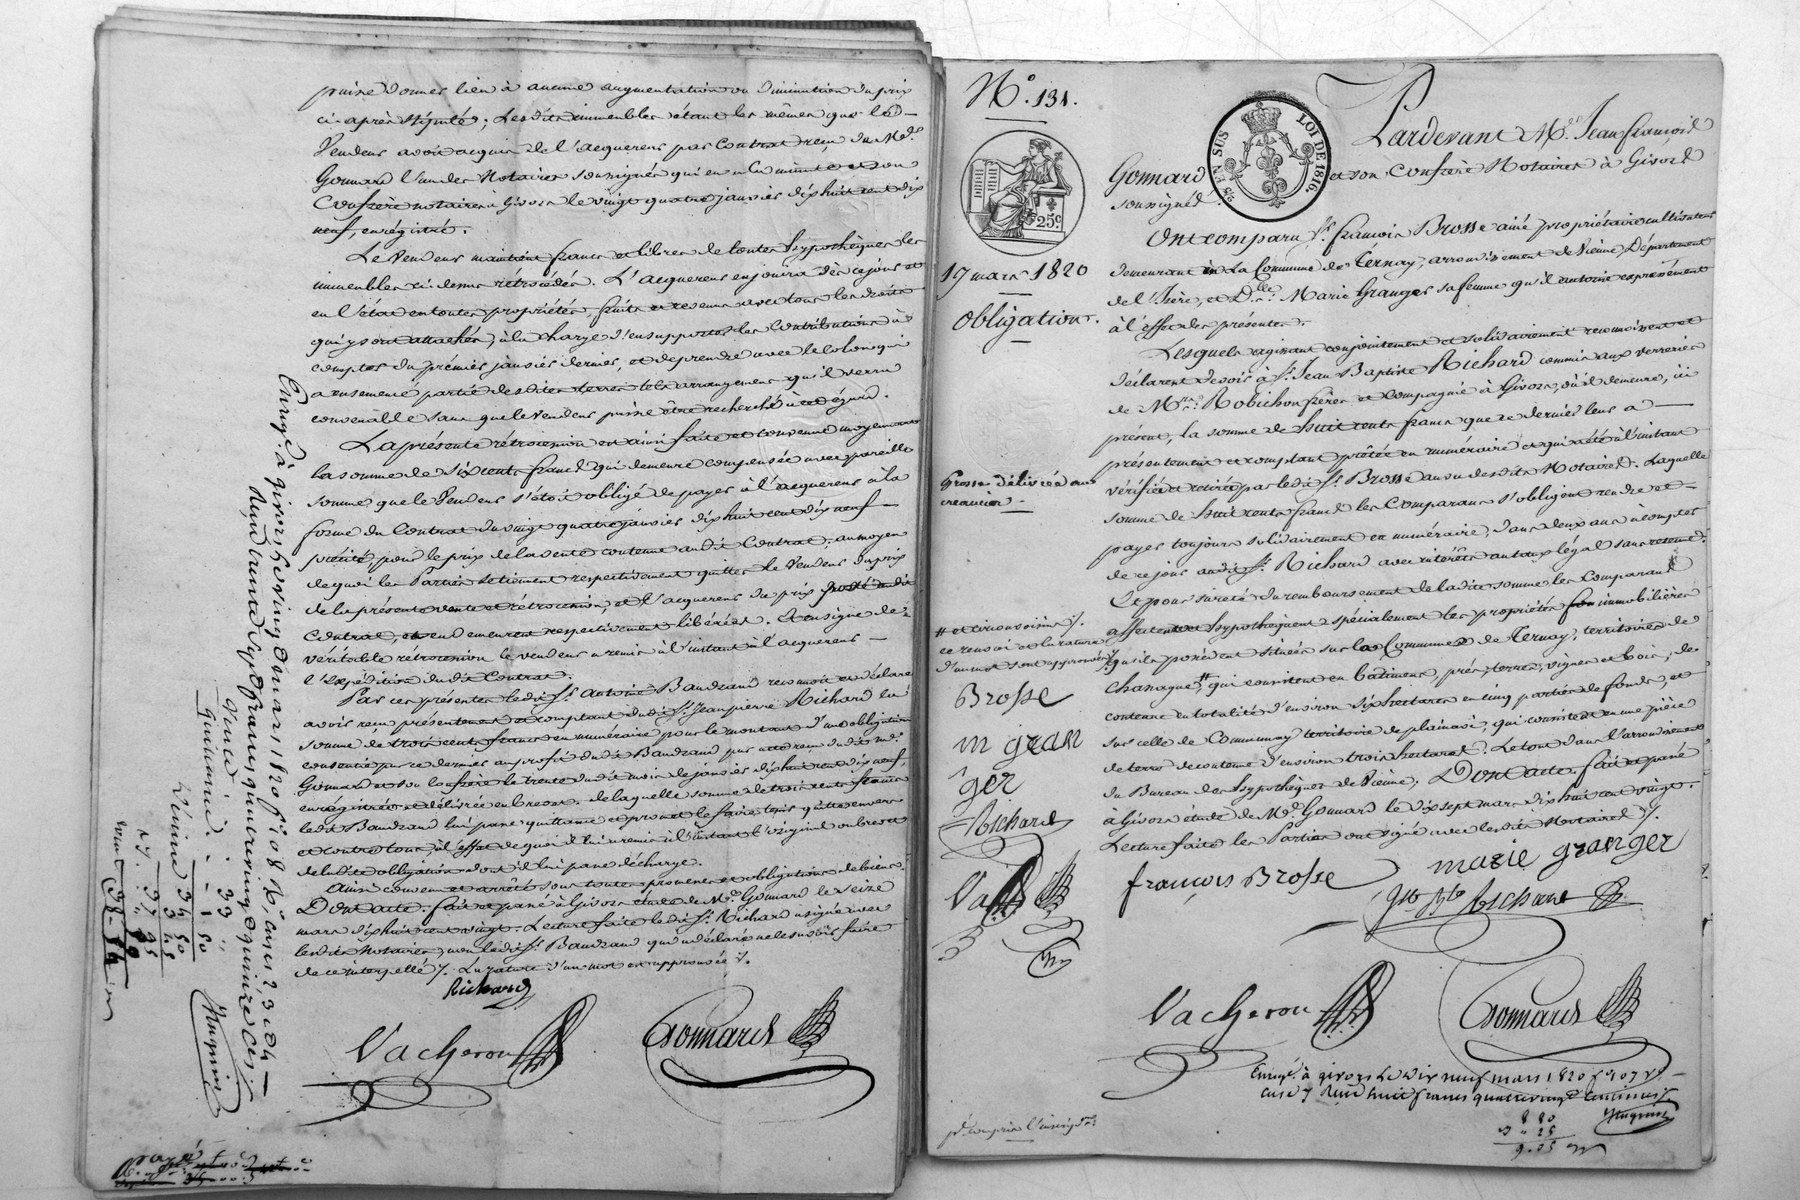 puisse donner lieu à aucune augmentation ou diminution du prix
ci-après stipulé; Lesdits immeubles étant les mêmes que led.
Vendeur avoit acquis de l'acquereur par Contrat reçu du Me.
Gonnard l'un des Notaires soussignés qui en a la minute et son
Confrère notaires à Givors le vingt quatre janvier dix huit cent dix
neuf, enrégistré.
Le Vendeur maintient francs et libres de toutes hypothèques les
immeubles ci dessus rétrocédés. L'acquereur en jouira dès ce jour et
en l'état en toutes propriétés, fruits et revenus avec tous les droits
qui y sont attachés, à la charge d'en supporter les Contributions à
compter du premier janvier dernier, et de prendre avec le colon qui
a ensemencé partie desdites terres tels arrangemens qu'il verra
convenable sans que le Vendeur puisse être recherché à cet égard.
La présente rétrocession est ainsi faite et convenue moyennant
la somme de six cents francs qui demeure compensée avec pareille
somme que le Vendeur s'étoit obligé de payer à l'acquereur à la
forme du Contrat du vingt quatre janvier dix huit cent dix neuf
précité, pour le prix de la vente contenue audit Contrat; au moyen
de quoi les Parties se tiennent respectivement quittes le Vendeur du prix
de la présente vente et rétrocession, et l'acquereur du prix porté audit
Contrat, et en demeurent respectivement libérées. Et en signe de
véritable rétrocession le vendeur a remis à l'instant à l'acquereur
l'expédition dudit Contrat.
Par ces présentes ledit Sr. Antoine Baudrand reconnoit et déclare
avoir reçu présentement et comptant dudit Sr. Jean pierre Richard la
somme de trois cents francs en numéraire pour le montant d'une obligation
consentie par ce dernier au profit dudit Baudrand par acte reçu dudit Me.
Gonnard et son Confrère le trente dudit mois de janvier dix huit cent dix neuf,
enrégistrée et délivrée en brevet. de laquelle somme de trois cents francs
ledit Baudrand lui passe quittance et promet le faire tenir quitte envers
et contre tous, à l'effet de quoi il lui a remis à l'instant l'original en brevet
de ladite obligation dont il lui passe décharge.
Ainsi convenu et arrêté sous toutes promesses et obligations de biens.
Dont acte. fait et passé à Givors étude de Me. Gonnard le seize
mars dix huit cent vingt. Lecture faite ledit Sr. Richard a signé avec
lesdits Notaires, non ledit Sr. Baudrand qui a déclaré ne le savoir faire
de ce interpellé. La rature d'un mot est approuvée.
Richard
Vacheron
Gonnard
Enregé. à givors le vingt mars 1820 fo. 108
Quittance
33
1 50
34 50
3 45
37 95
No. 131.
25c.
EN SUS
LOI DE 1816.
17 mars 1820
Obligation.
Grosse délivrée au
créancier
Pardevant Me. Jean françois
Gonnard et son Confrère Notaires à Givors
soussignés
Ont comparu Sr. francois Brosse ainé propriétaire cultivateur
demeurant en La Commune de Ternay, arrondissement de Vienne, Département
de l'Isère, et Dlle. Marie Granger sa femme qu'il autorise expressément
à l'effet des présentes.
Lesquels agissant conjointement et solidairement reconnoissent et
déclarent devoir à Sr. Jean Baptiste Richard commis aux verreries
de Mrs. Robichon frères et compagnie à Givors, où il demeure, ici
présent, la somme de huit cents francs que ce dernier leur a
présentement et comptant prêtée en numéraire et qui a été à l'instant
vérifiée et retirée par ledit Sr. Brosse au vu desdits Notaires. Laquelle
somme de huit cents francs les Comparans s'obligent rendre et
payer toujours solidairement en numéraire, dans deux ans à compter
de ce jour audit Sr. Richard avec intérêts au taux légal sans retenue.
Et pour sureté du remboursement de ladite somme les Comparans
affectent et hypothèquent spécialement les propriétés immobilières
qu'ils possèdent situées sur les Communes de Ternay, territoires de
Chassagne, # qui consistent en bâtimens, prés, terres, vignes et bois, de
contenue en totalité d'environ six hectares en cinq parties de fonds, et
sur celle de Communay territoire de plainasi, qui consistent en une pièce
de terre de contenue d'environ trois hectares. Le tout dans l'arrondissement
du Bureau des hypothèques de Vienne; Dont acte. fait et passé
à Givors étude de Me. Gonnard le dix sept mars dix huit cent vingt.
Lecture faite les Parties ont signé avec lesdits Notaires.
# et circonvoisins
ce renvoi et la rature
d'un mot sont approuvés
Brosse
m gran
ger
Richard
françois Brosse
marie granger
Richard
Vacheron
Gonnard
Enregé. à givors Le dix neuf mars 1820 fo. 107
case 7 Reçu huit francs quatre vingt centimes
8 80
9.05